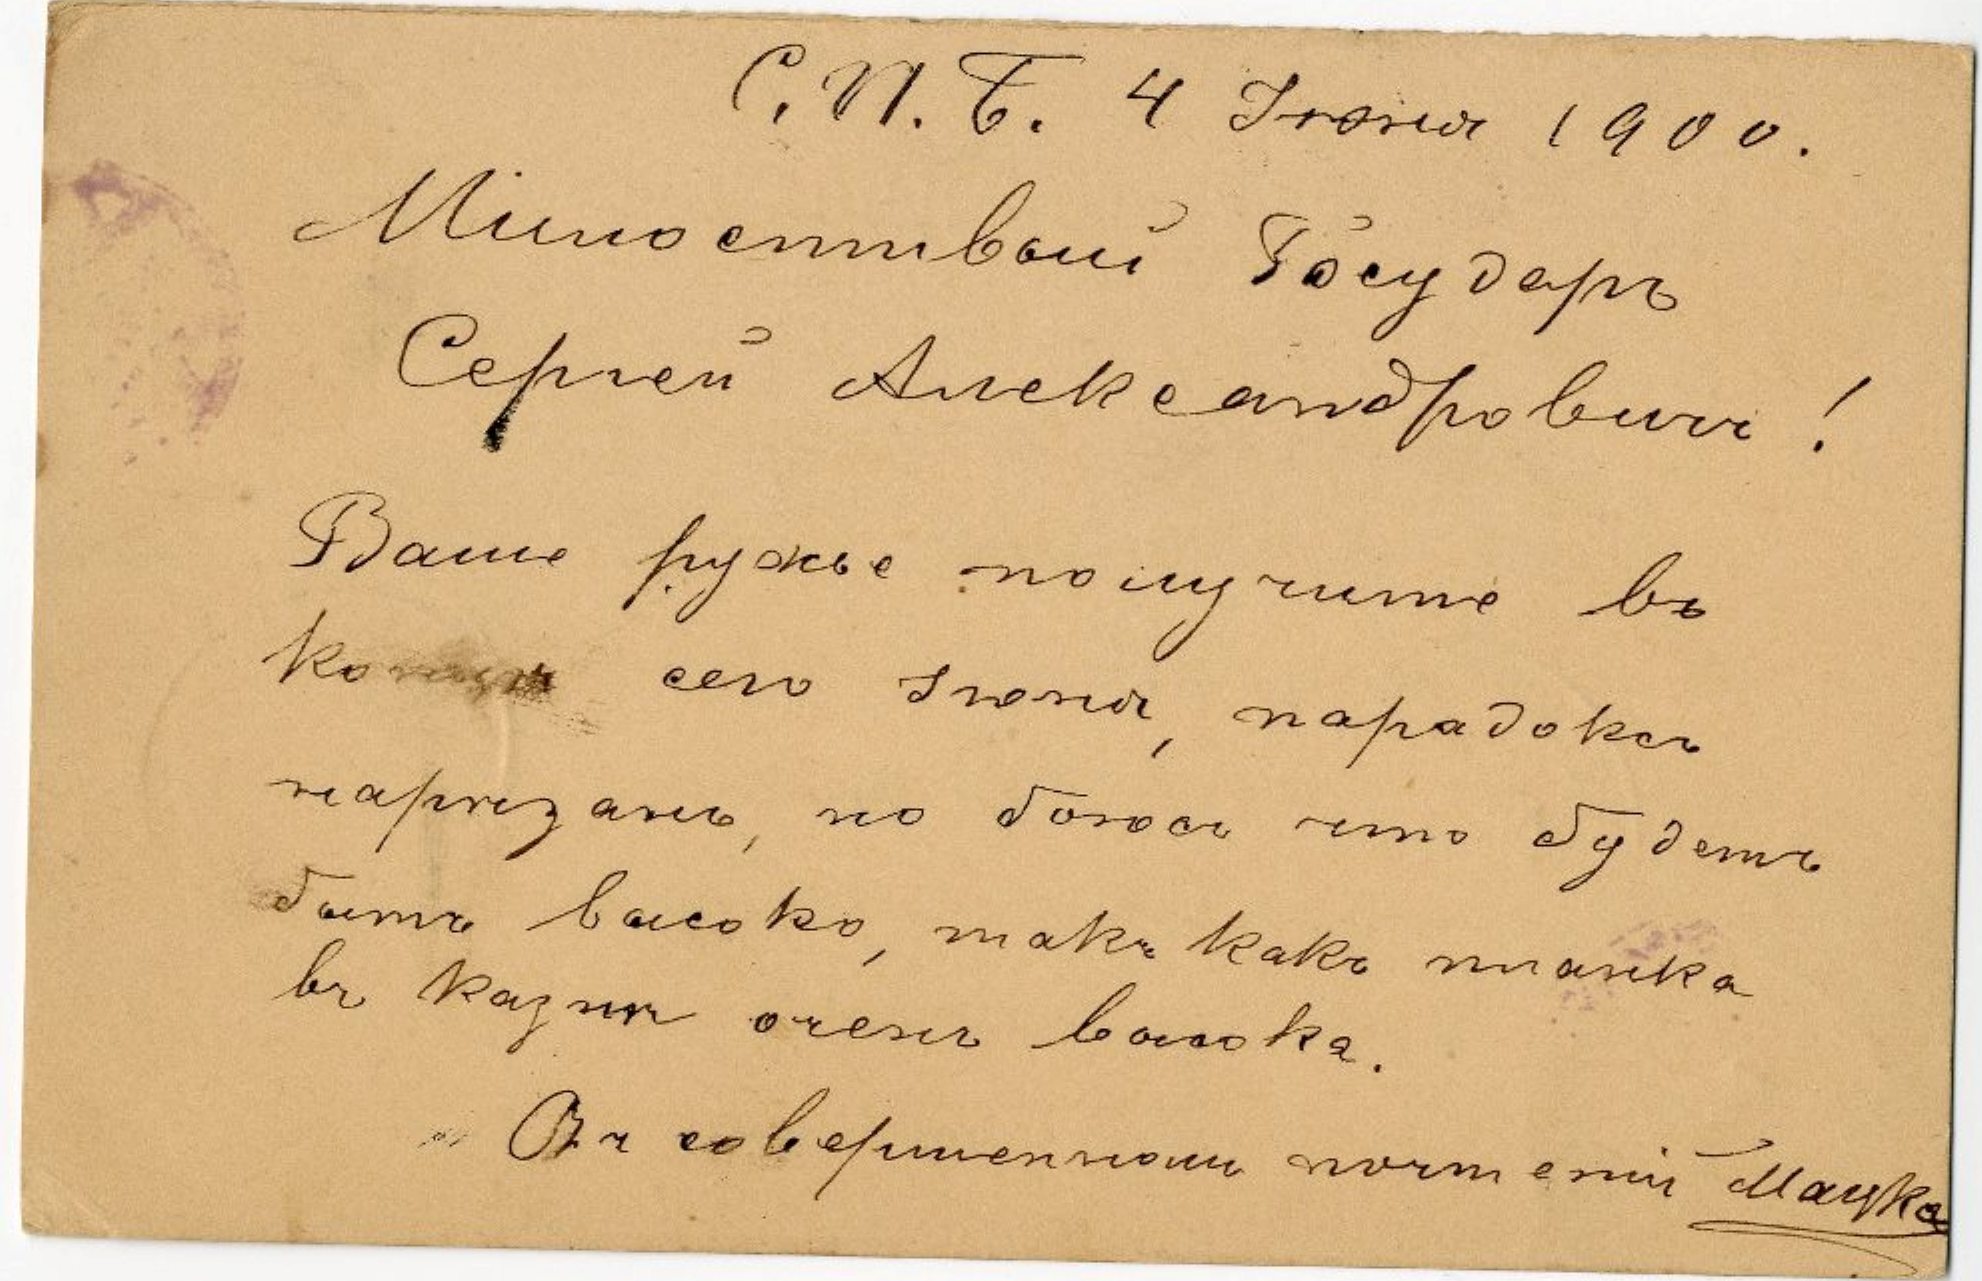 С. П. Б. 4 Іюня 1900.
Милостивый Государь
Сергей Александровичъ!
Ваше ружье получите въ
концѣ сего Іюня, парадоксъ
нарѣзанъ, но боюсь что будетъ
бить высоко, такъ какъ планка
въ казнѣ очень высока.
Въ совершенномъ почтеніи Мацка